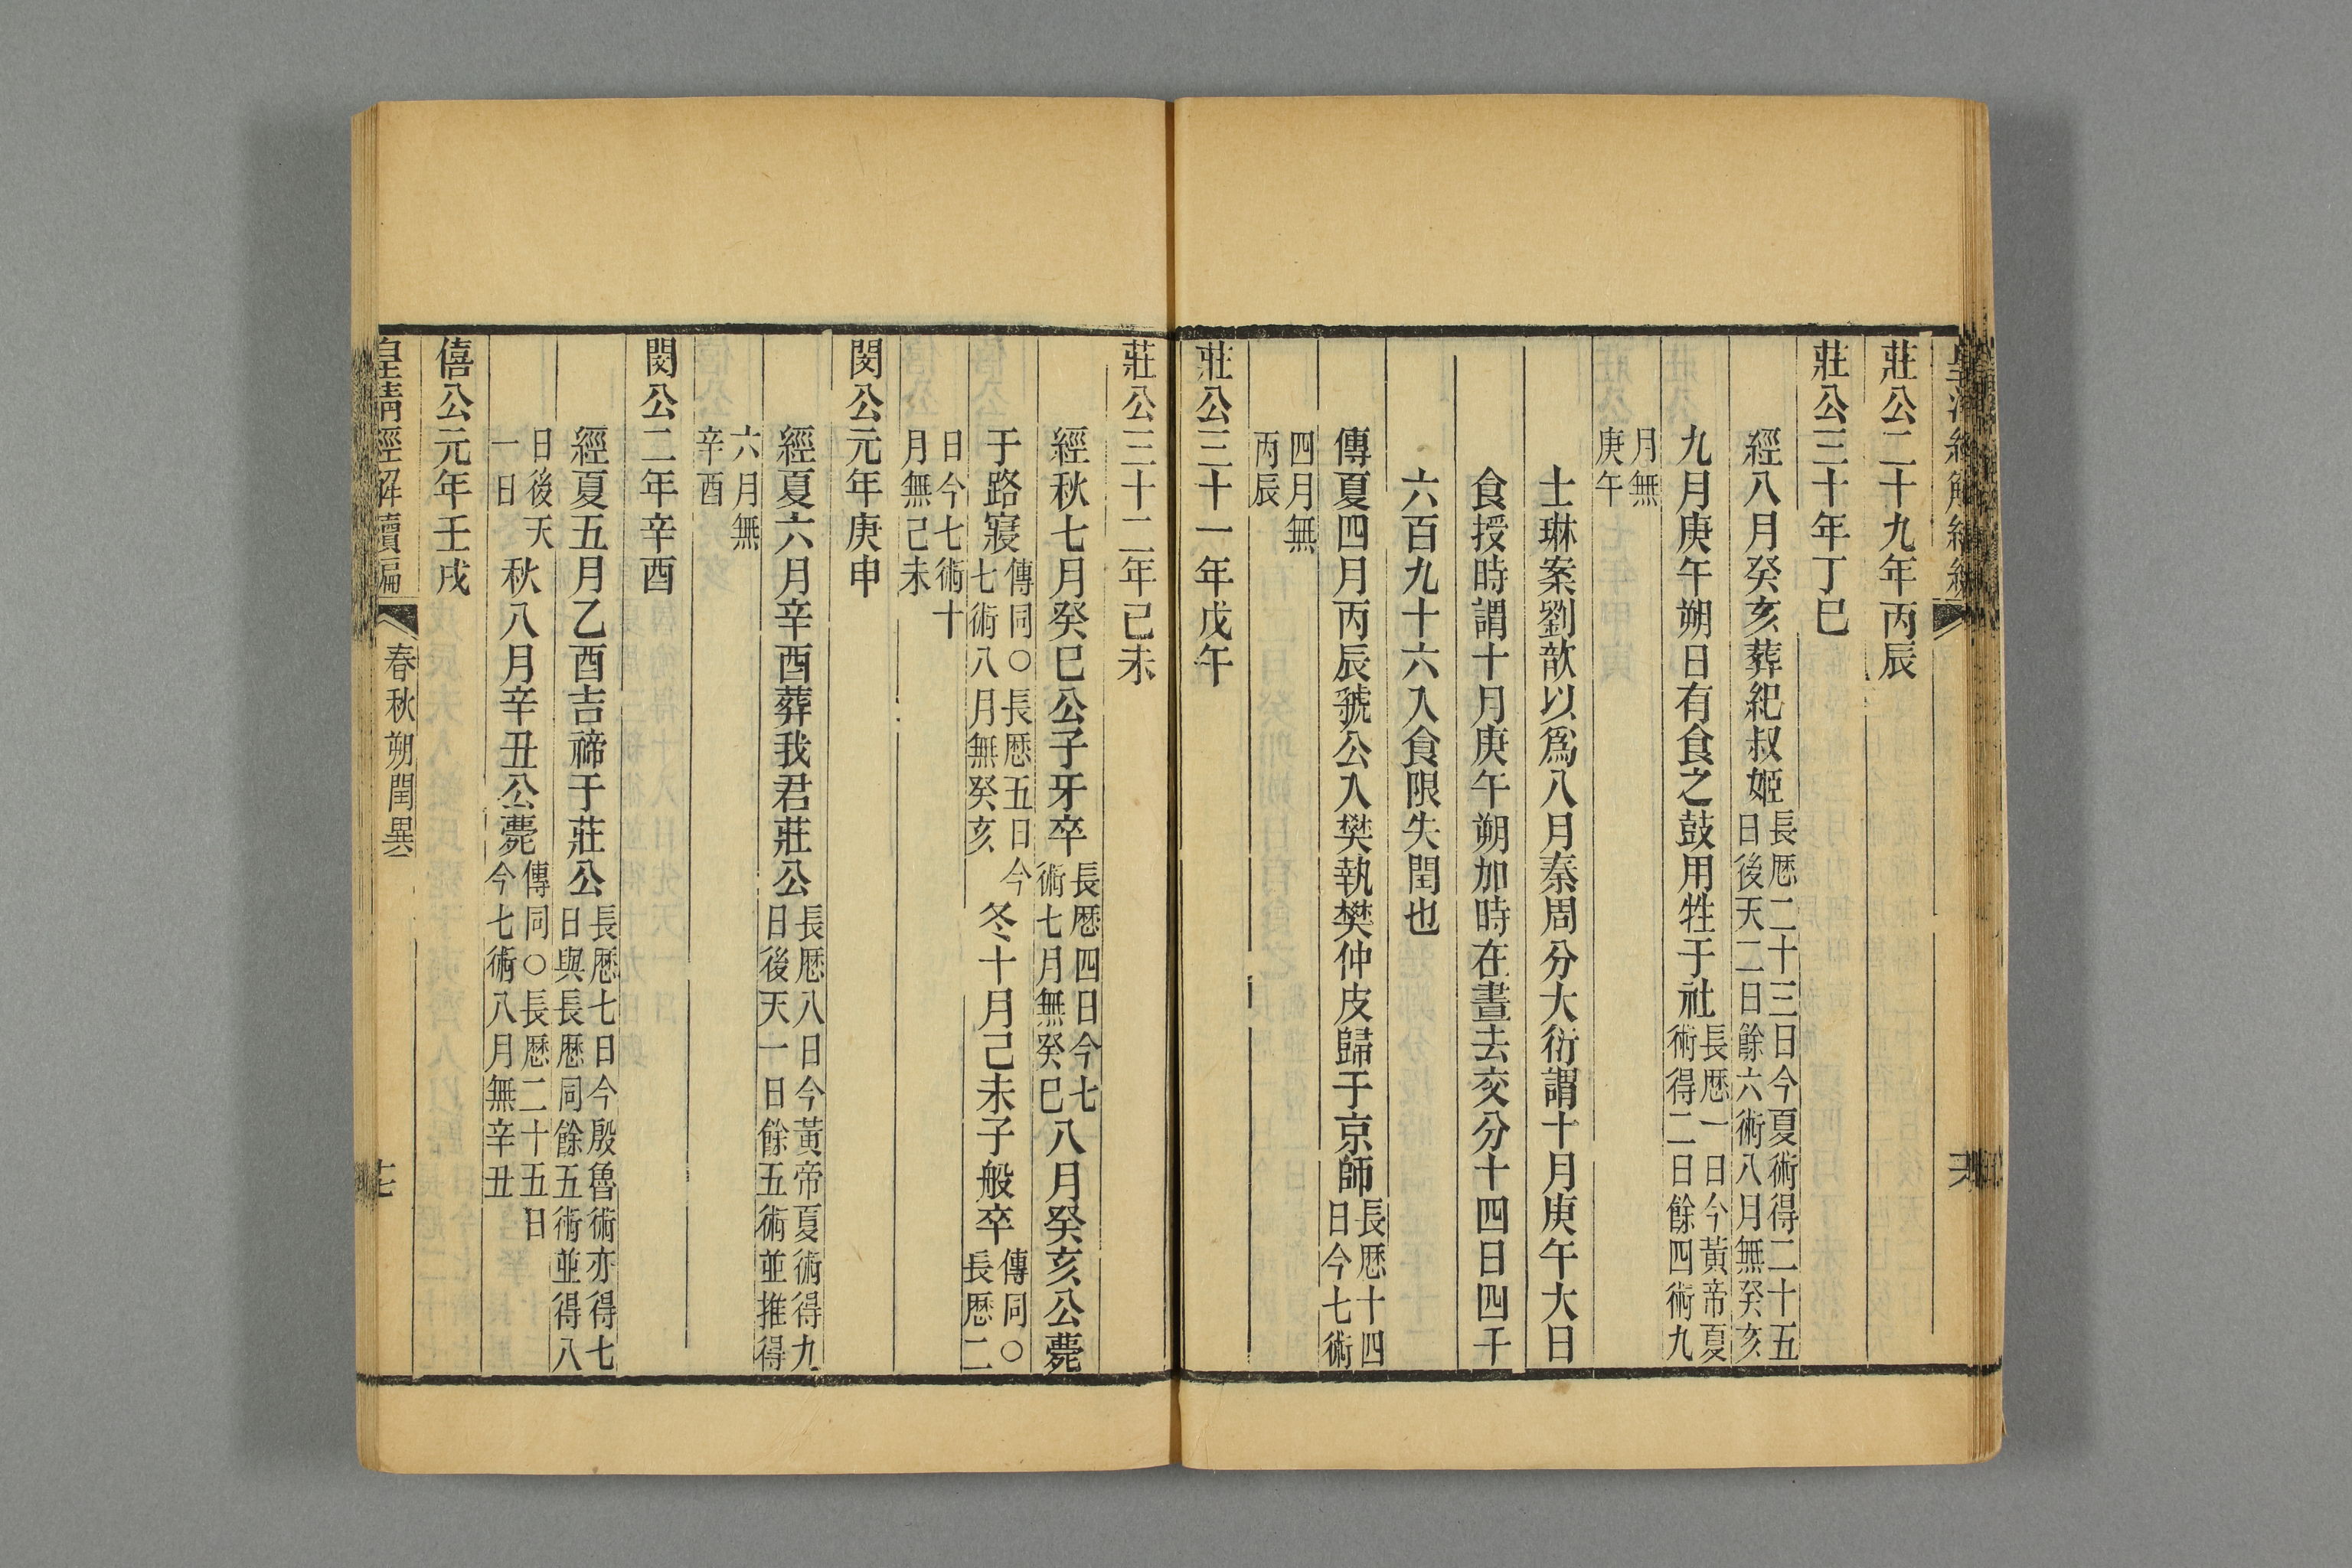 莊公二十九年丙辰
莊公三十年丁巳
經八月癸亥葬紀叔姬長厯二十三日今夏術得二十五日後天二日餘六術八月無癸亥
九月庚午朔日有食之鼓用牲于社長厯一日今黃帝夏術得二日餘四術九
月無庚午
士琳案劉歆以爲八月秦周分大衍謂十月庚午大日
食授時謂十月庚午朔加時在晝去交分十四日四千
六百九十六入食限失閏也
傳夏四月丙辰虢公入樊執樊仲皮歸于京師長厯十四日今七術
四月無丙辰
莊公三十一年戊午
莊公三十二年己未
經秋七月癸巳公子牙卒長厯四日今七術七月無癸巳八月癸亥公薨
于路寢傳同○長厯五日今七術八月無癸亥冬十月己未子般卒傳同○長厯二
日今七術十月無己未
閔公元年庚申
經夏六月辛酉葬我君莊公長厯八日今黃帝夏術得九日後天一日餘五術並推得
六月無辛酉
閔公二年辛酉
經夏五月乙酉吉禘于莊公長厯七日今殷魯術亦得七日與長厯同餘五術並得八
日後天一日秋八月辛丑公薨傳同○長厯二十五日今七術八月無辛丑
僖公元年壬戌
皇清經解續編 春秋朔閏異 七